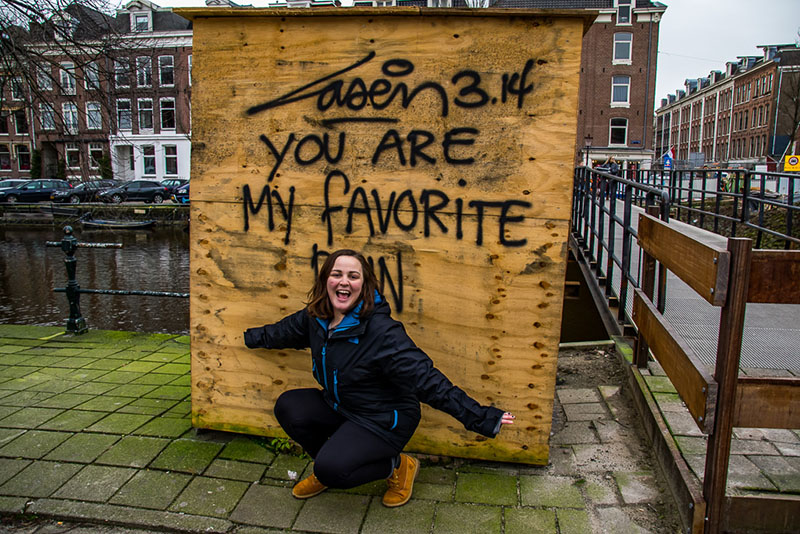 Laser 3.14
YOU ARE
MY FAVORITE